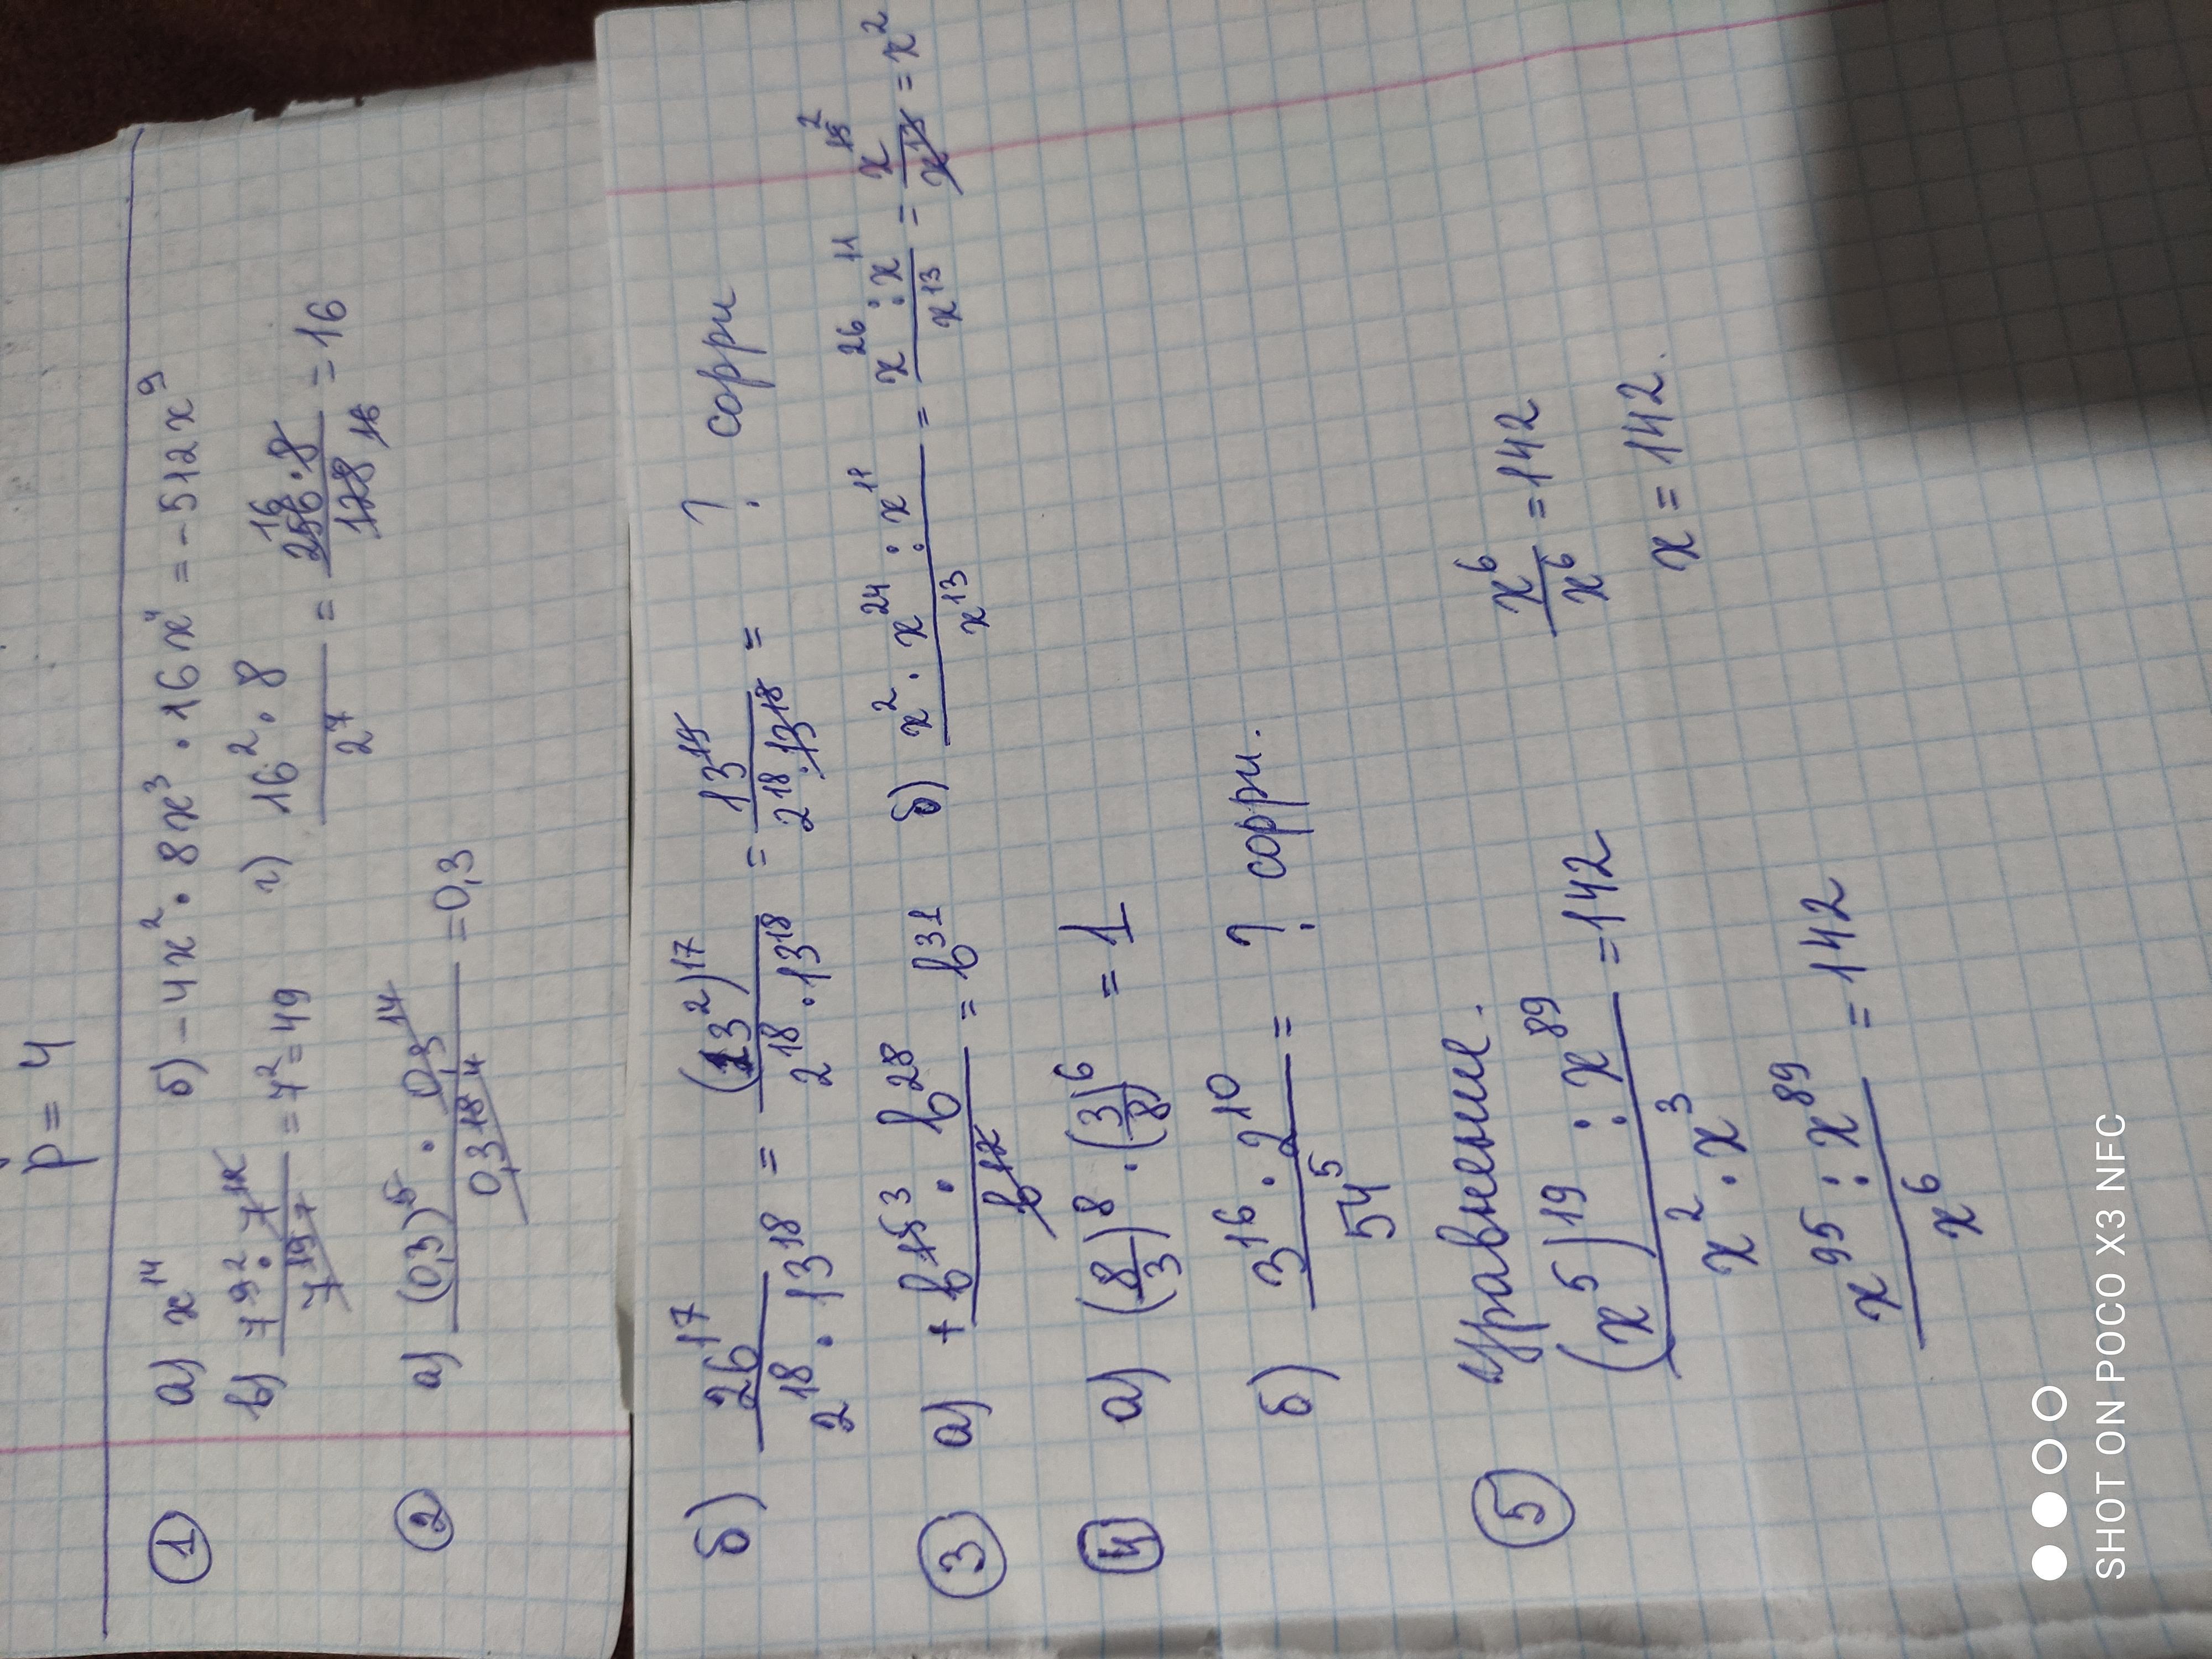 p = 4
① а) x¹⁴ б) -4x² · 8x³ · 16x⁴ = -512x⁹
в) 7⁹² · 7¹² / 7¹⁹ ⁷ = 7² = 49 г) 16² · 8 / 2⁷ = 256 ¹⁶ · 8 / 128 16 = 16
② а) (0,3)⁵ · 0,3¹⁴ / 0,3¹⁸ ⁴ = 0,3
б) 26¹⁷ / 2¹⁸ · 13¹⁸ = (13²)¹⁷ / 2¹⁸ · 13¹⁸ = 13¹⁴ / 2¹⁸ · 13¹⁸ = ? сорри
③ а) + b¹⁵ ³ · b²⁸ / b¹² = b³¹ б) x² · x²⁴ : x¹¹ / x¹³ = x²⁶ : x¹¹ / x¹³ = x¹⁵ ² / x¹³ = x²
④ а) (8/3)⁸ · (3/8)⁶ = 1
б) 3¹⁶ · 2¹⁰ / 54⁵ = ? сорри.
⑤ уравнение.
(x⁵)¹⁹ : x⁸⁹ / x² · x³ = 142 x⁶ / x⁶ = 142
x⁹⁵ : x⁸⁹ / x⁶ = 142 x = 142.
SHOT ON POCO X3 NFC